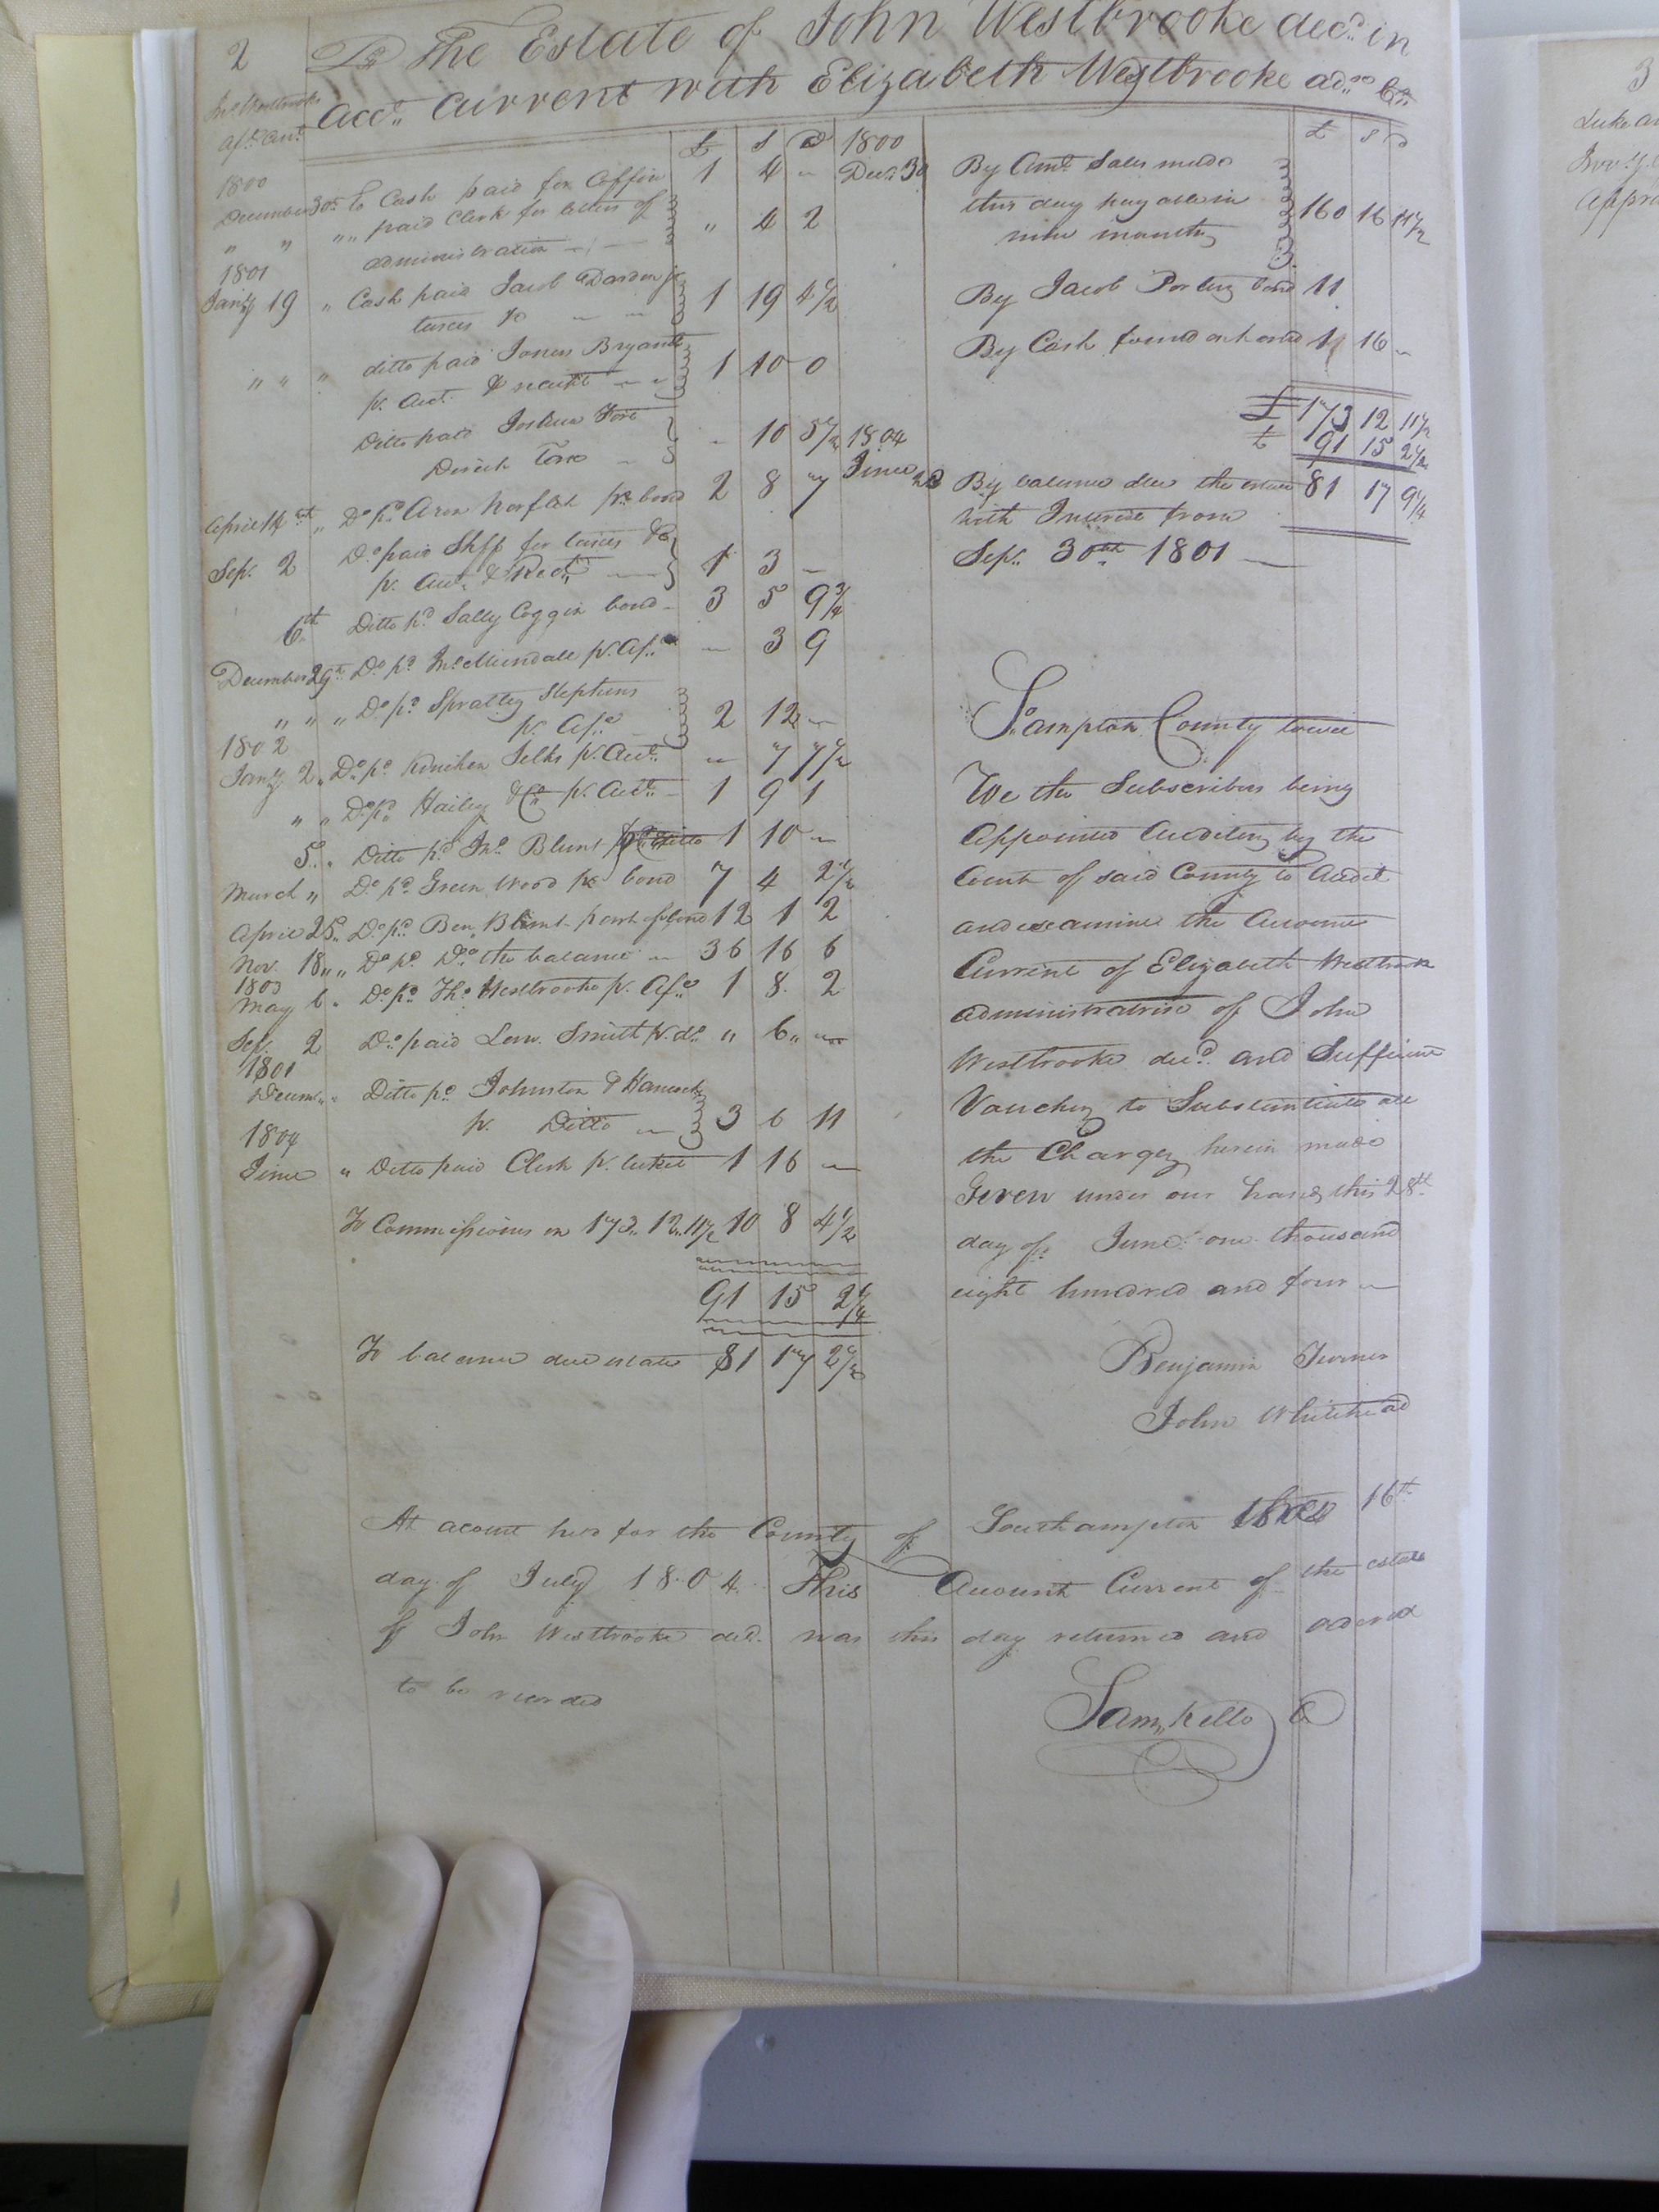 2
Dr The Estate of John Westbrooke decd. in
Jno. Westbrooke
acct. Current with Elizabeth Westbrooke adx. Cr.
£ s d
1800
December 30th To Cash paid for Coffin 1 4 „
„ „ „„ paid Clerk for letters of
administration — „ 4 2
1801
Jany 19 „ Cash paid Jacob Darden jr
taxes &c 1 19 4 1/2
„ „ „ ditto paid James Bryant
pr. Acct. & receipt 1 10 0
Ditto paid Joshua Fort
Direct Tax - 10 5 1/2
April 14th „ Do. pd. Aron Norflet pr. bond 2 8 7
Sep. 2 Do. paid Shff for taxes &c
pr. Acct. & Rect. 1 3 —
6th Ditto pd. Sally Coggin bond - 3 5 9 3/4
December 29th Do. pd. Jno. Mundall pr. Afst. — 3 9
„ „ „ Do. pd. Spratley Stephens
pr. Afst. 2 12 —
1802
Jany 2 „ Do. pd. Kinchen Selks pr. Acct. „ 7 7 1/2
„ „ Do. pd. Hailey & Co. pr. Acct. - 1 9 1
5 „ Ditto pd. Jno. Blunt pr. Ditto 1 10 —
March „ Do. pd. Green Wood pr. bond 7 4 2 1/2
April 25 „ Do. pd. Ben. Blunt part of bond 12 1 2
Nov. 18 „ „ Do. pd. Do. the balance — 36 16 6
1803
May 6 „ Do. pd. Tho. Westbrooke pr. Afst. 1 8 2
Sep. 2 Do. paid Law. Smith pr. do. „ 6 „ —
1801
Decem. „ Ditto pd. Johnston & Hancock
pr. Ditto — 3 6 11
1804
June „ Ditto paid Clerk pr. ticket 1 16 —
To Commissions on 173 „ 12 „ 11 1/2 10 8 4 1/2
91 15 2 1/4
To balance due estate 81 17 2 1/2
1800 £ s d
Decr. 30 By Amt. Sales made
this day payable in
nine months 160 16 11 1/2
By Jacob Porters bond 11
By Cash found on hand 1 16 -
£ 173 12 11 1/2
£ 91 15 2 1/2
1804
June 28 By balance due the estate 81 17 9 1/4
with Interest from
Sep. 30th 1801 —
So.ampton County towit
We the Subscribers being
Appointed Auditors by the
Court of said County to Audit
and examine the Account
Current of Elizabeth Westbrook
administratrix of John
Westbrooke decd. and Sufficient
Vouchers to Substantiate all
the Charges herein made
Given under our hands this 28th
day of June one thousand
eight hundred and four —
Benjamin Turner
John Whitehead
At acourt held for the County of Southampton 16th
day of July 1804. This Account Current of the estate
of John Westbrooke decd. was this day returned and ordered
to be recorded
Sam. Kello C
3
Luke